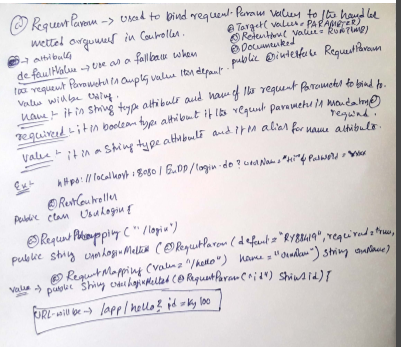 @RequestParam → used to bind request Param values to the handler
method argument in Controller.
@Target( value = PARAMETER)
@Retention( value = RUNTIME)
@Documented
public @interface RequestParam
→ attributes
defaultValue → use as a fallback when
the request Parameter is empty value then default
value will be using.
Name :- it is String type attribute and name of the request Parameter to bind to.
required :- it is boolean type attribute it the request parameter is mandatory
required.
Value :- it is a String type attribute and it is alias for name attribute.
Ex:-
http://localhost:8080/ /login.do? userName="Hi" & Password =
@RestController
Public class UserLogin {
@RequestMapping ("/login")
public String userLoginMethod (@RequestParam (default = "RY88419", required = true,
name = "userName") String userName)
Value → @RequestMapping (value = "/hello")
public String userLoginMethod (@RequestParam ("id") String id) {
URL-will be → /app/hello? id = Ky100